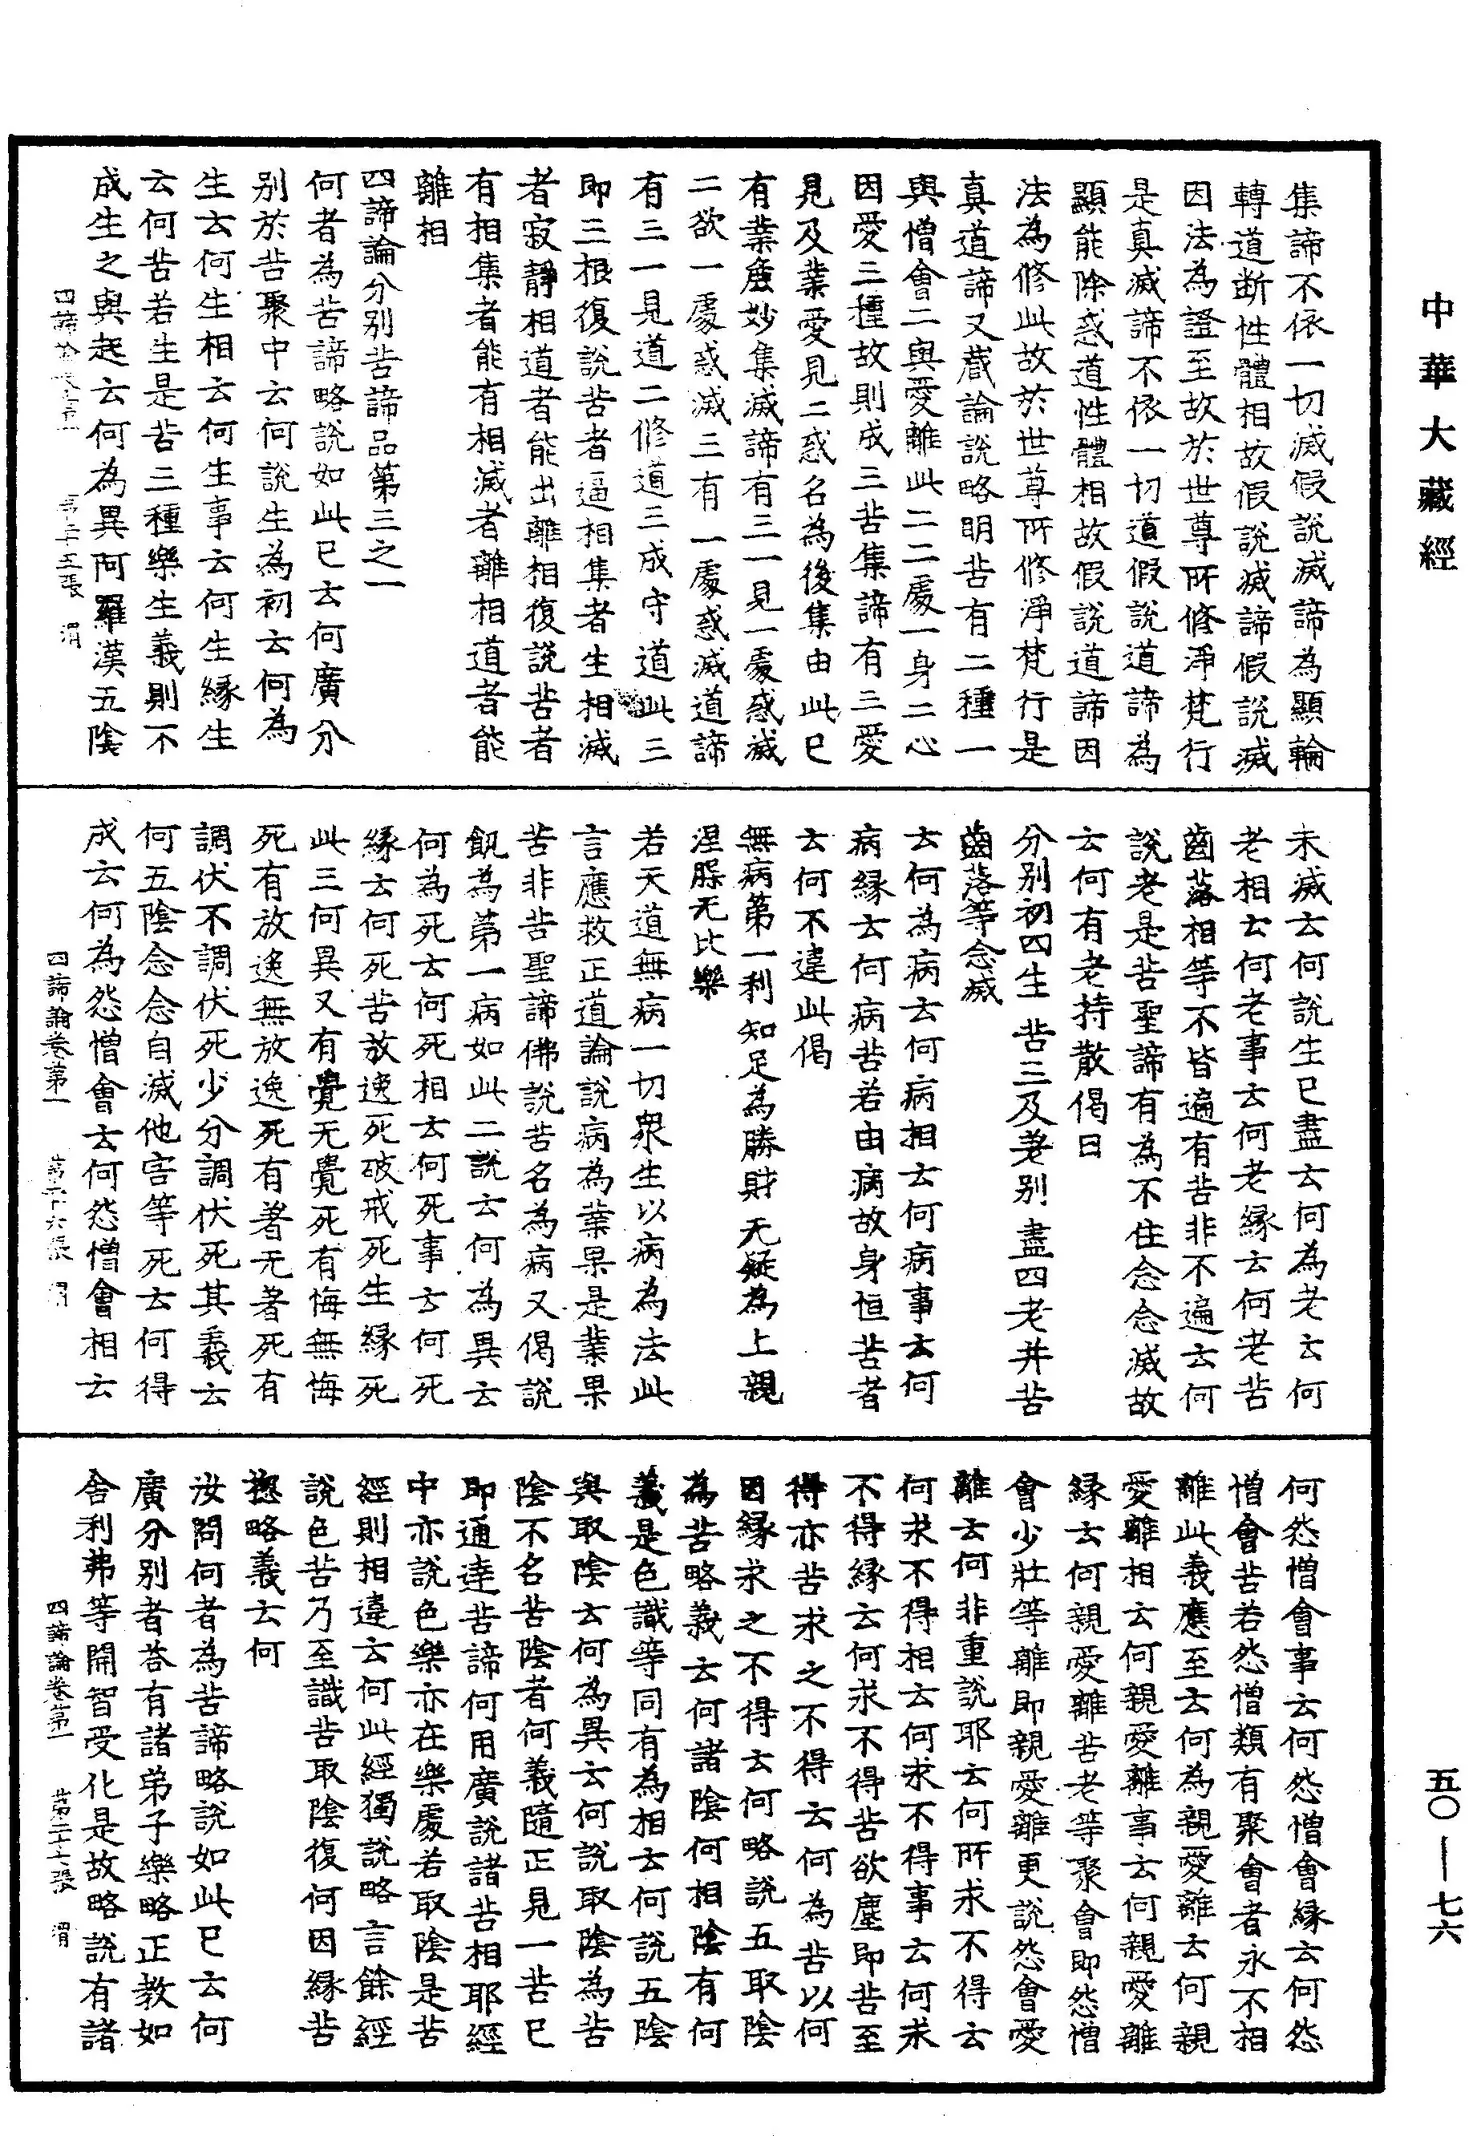 中華大藏經
集諦不依一切滅假說滅諦為顯輪
轉道断性體相故假說滅諦假說滅
因法為證至故於世尊所修淨梵行
是真滅諦不依一切道假說道諦為
顯能除惑道性體相故假說道諦因
法為修此故於世尊所修淨梵行是
真道諦又蔵論說略明苦有二種一
與憎會二與愛離此二二處一身二心
因愛三種故則成三苦集諦有三愛
見及業愛見二惑名為後集由此已
有業麁妙集滅諦有三一見一處惑滅
二欲一處惑滅三有一處惑滅道諦
有三一見道二修道三成守道此三
即三根復說苦者逼相集者生相滅
者寂靜相道者能出離相復說苦者
有相集者能有相滅者離相道者能
離相
四諦論分別苦諦品第三之一
何者為苦諦略說如此已云何廣分
別於苦聚中云何說生為初云何為
生云何生相云何生事云何生緣生
云何苦若生是苦三種樂生義則不
成生之與起云何為異阿羅漢五陰
四諦論卷第一 第二十五張 渭
未滅云何說生已盡云何為老云何
老相云何老事云何老緣云何老苦
齒落相等不皆遍有苦非不遍云何
說老是苦聖諦有為不住念念滅故
云何有老持散偈曰
分別初四生 苦三及老別 盡四老并苦
齒落等念滅
云何為病云何病相云何病事云何
病緣云何病苦若由病故身恒苦者
云何不違此偈
無病第一利 知足為勝財 无疑為上親
涅槃无比樂
若天道無病一切衆生以病為法此
言應救正道論說病為業果是業果
苦非苦聖諦佛說苦名為病又偈說
飢為第一病如此二說云何為異云
何為死云何死相云何死事云何死
緣云何死苦放逸死破戒死生緣死
此三何異又有覺无覺死有悔無悔
死有放逸無放逸死有著无著死有
調伏不調伏死少分調伏死其義云
何五陰念念自滅他害等死云何得
成云何為怨憎會云何怨憎會相云
四諦論卷第一 第二十六張 渭
何怨憎會事云何怨憎會緣云何怨
憎會苦若怨憎類有聚會者永不相
離此義應至云何為親愛離云何親
愛離相云何親愛離事云何親愛離
緣云何親愛離苦老等聚會即怨憎
會少壯等離即親愛離更說怨會愛
離云何非重說耶云何所求不得云
何求不得相云何求不得事云何求
不得緣云何求不得苦欲塵即苦至
得亦苦求之不得云何為苦以何
因緣求之不得云何略說五取陰
為苦略義云何諸陰何相陰有何
義是色識等同有為相云何說五陰
與取陰云何為異云何說取陰為苦
陰不名苦陰者何義隨正見一苦已
即通達苦諦何用廣說諸苦相耶經
中亦說色樂亦在樂處若取陰是苦
經則相違云何此經獨說略言餘經
說色苦乃至識苦取陰復何因緣苦
揔略義云何
汝問何者為苦諦略說如此已云何
廣分別者荅有諸弟子樂略正教如
舎利弗等開智受化是故略說有諸
四諦論卷第一 第二十七張 渭
五〇—七六